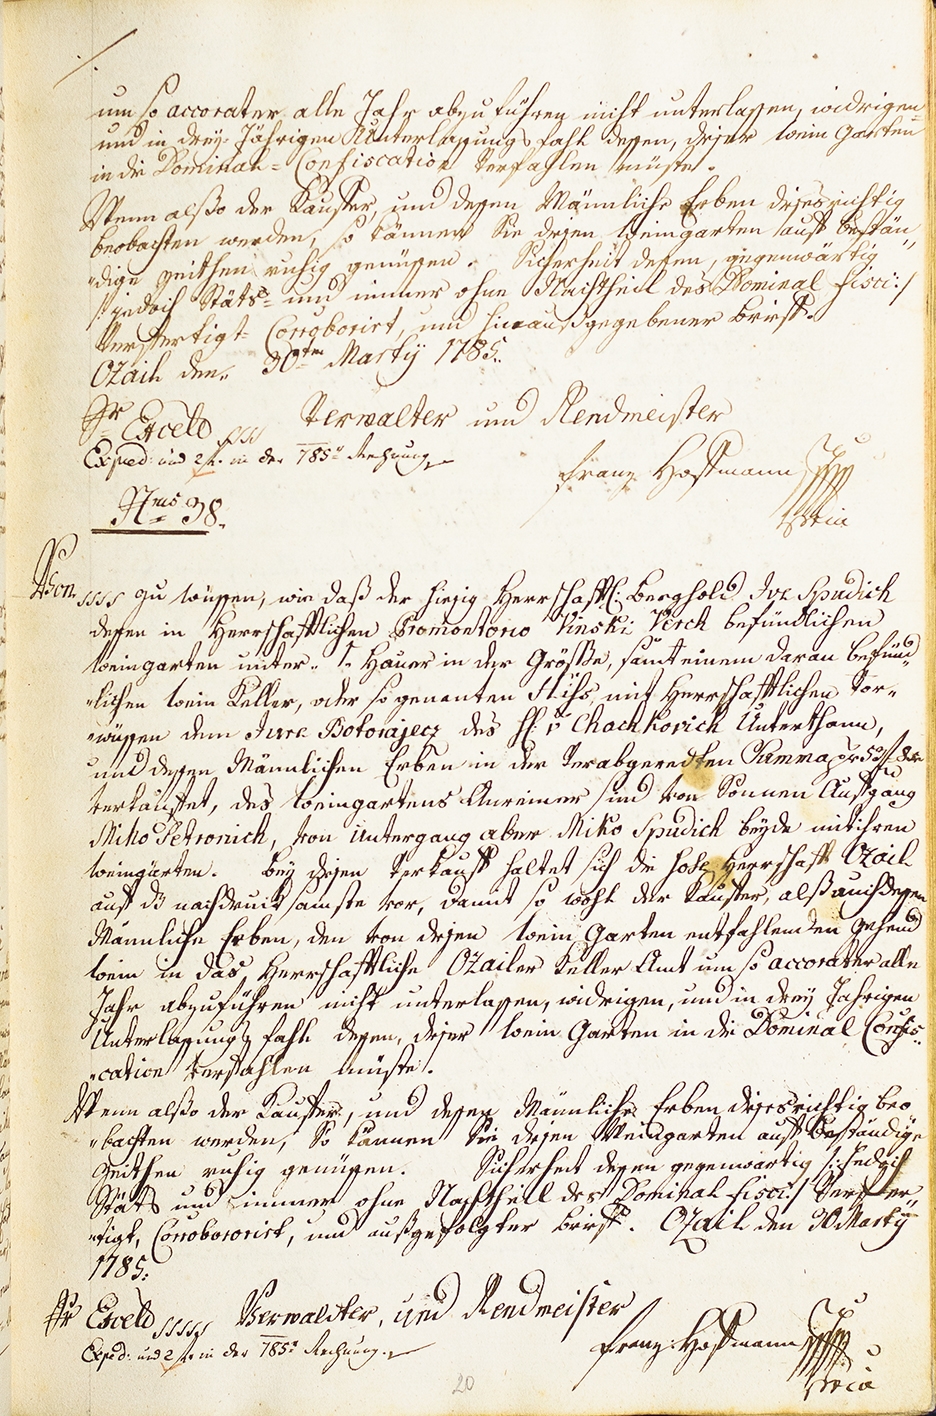 um so accorater alle Jahr abzuführen nicht unterlassen, widrigen
und in drey Jährigen Unterlassungs fahl dessen, dieser Wein Garten
in die Dominal = Confiscation Verfahlen müste.
Wenn also der Kauffer, und dessen Männliche Erben dieses richtig
beobachten werden, so können Sie diesen Weingarten auf bestän„
„dige Zeithen ruhig genüssen. Sicherheit dessen, gegenwärtig
/:jedoch Stäts= und immer ohne Nachtheil des Dominal fisci:/
Verfertigt= Corroborirt, und hinausgegebener Brief.
Ozail den 30ten Martÿ 1785.
Verwalter und Rendmeister
Exped: und 2 in der 785er Rechnung
Franz Hoffmann
Nrus 38.
Von zu wissen, wie daß der hiesig Herrschaftl: Berghold Ive Spudich
dessen in Herrschafftlichen Promontorio Vinski Verch befündlichen
Weingarten unter 1 Hauer in der Größe, samt einem daran befünd„
„lichen Wein Keller, oder so genenten Hihs mit Herrschafftlichen Vor„
„wissen dem Jure Botorajecz des H: v Chachkovich Unterthann,
und dessen Männlichen Erben in der Verabgeredten Summa pr
verkauffet, des Weingartens Anreiner sind von Sonnen Aufgang
Miko Petrovich, von Untergang aber Miko Spudich beyde mit ihren
Weingärten. Bey diesen Verkauff haltet sich die hohe Herrschaft Ozail
auf das nachdrucksamste vor, damit so wohl der Kauffer, als auch dessen
Männliche Erben, den von diesen Wein Garten entfahlenden Zehend
Wein in das Herrschafftliche Ozailer Keller Amt um so accorater alle
Jahr abzuführen nicht unterlassen, widrigen, und in drey Jahrigen
Unterlassungs fahl dessen, dieser Wein Garten in die Dominal Confis„
„cation Verfahlen müste.
Wenn also der Kauffer, und dessen Männliche Erben dieses richtig beo„
„bachten werden, So können Sie diesen Weingarten auf beständige
Zeithen ruhig genüssen. Sicherheit dessen gegenwärtig /:jedoch
Stäts und immer ohne Nachtheil des Dominal fisci:/ Verfer„
„tigt, Corroborirt, und ausgefolgter Brief. Ozail den 30 Martÿ
1785:
Verwalter, und Rendmeister
Exped: und 2 in der 785er Rechnung.
Franz Hoffmann
20